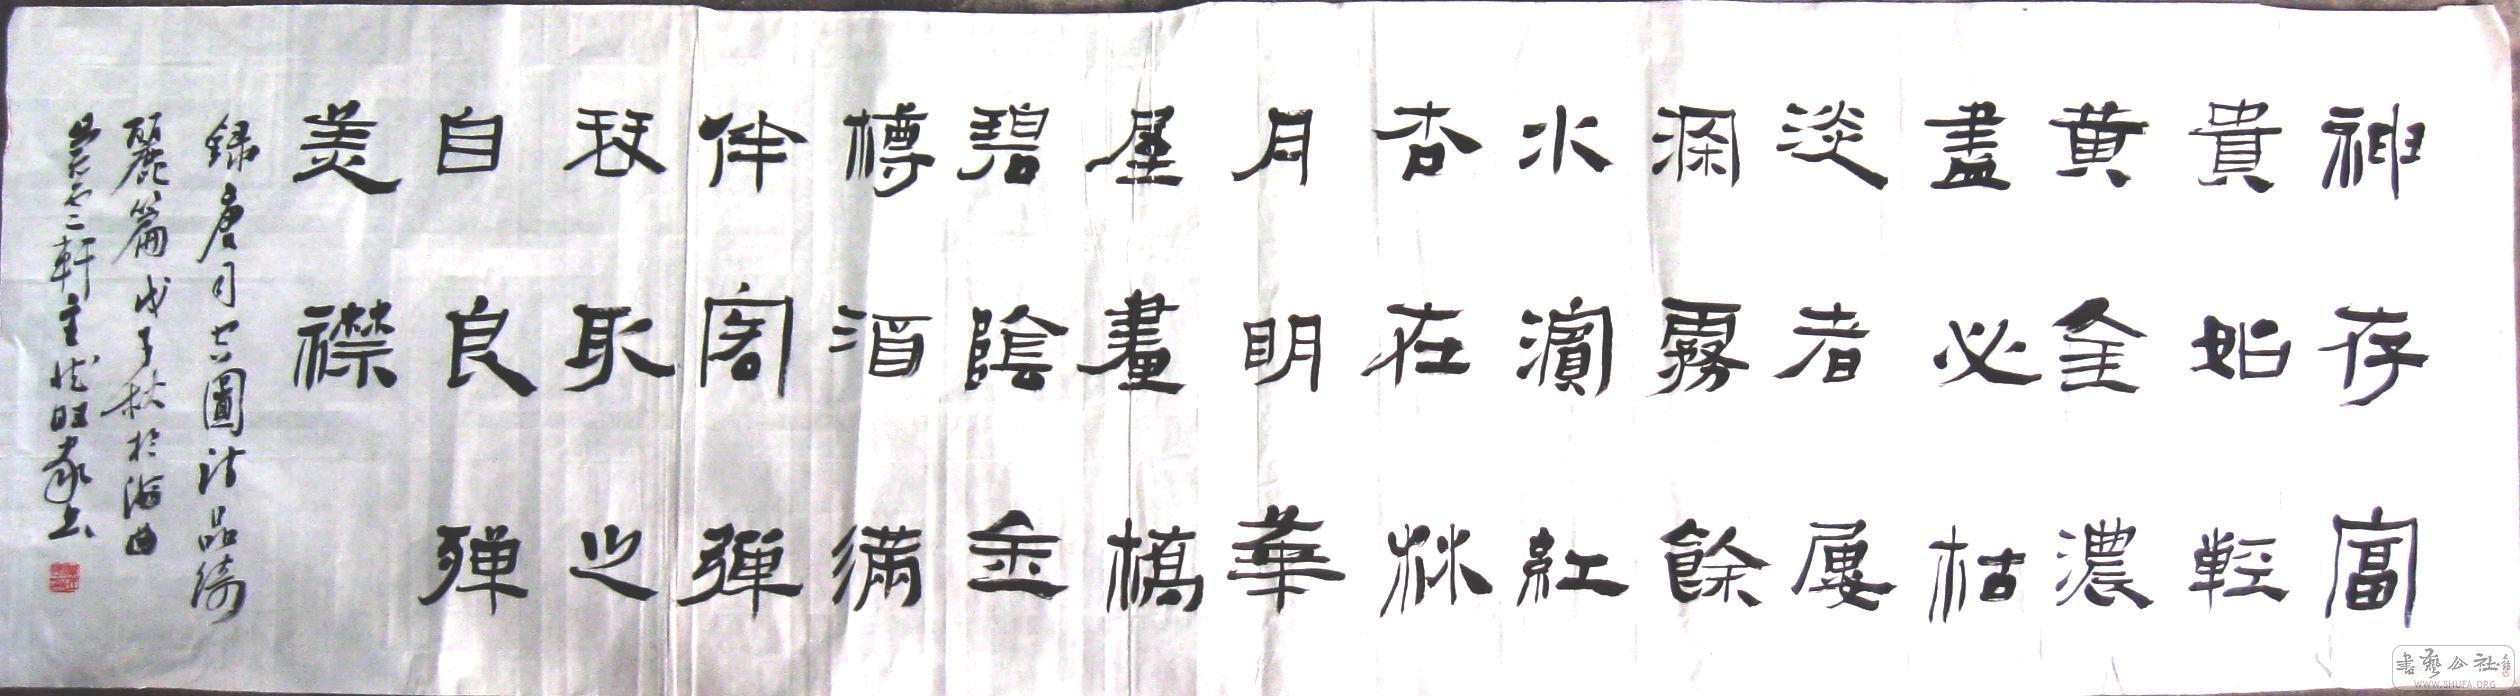 神存富
貴始輕
黄金濃
盡必枯
淡者屢
深霧餘
水濵紅
杏在林
月明華
屋畫橋
碧陰金
樽酒滿
伴客彈
琴取之
自良殫
美襟
錄唐司空圖詩品綺
麗篇戊子秋於海曲
軒主
書藝公社
WWW.SHUFA.ORG